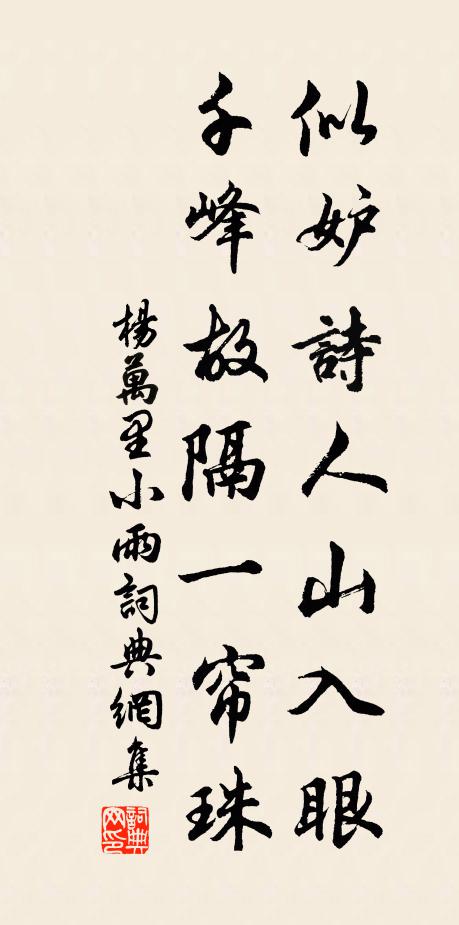 似妒詩人山入眼
千峰故隔一帘珠
楊萬里小雨詞典網集
詞典網印